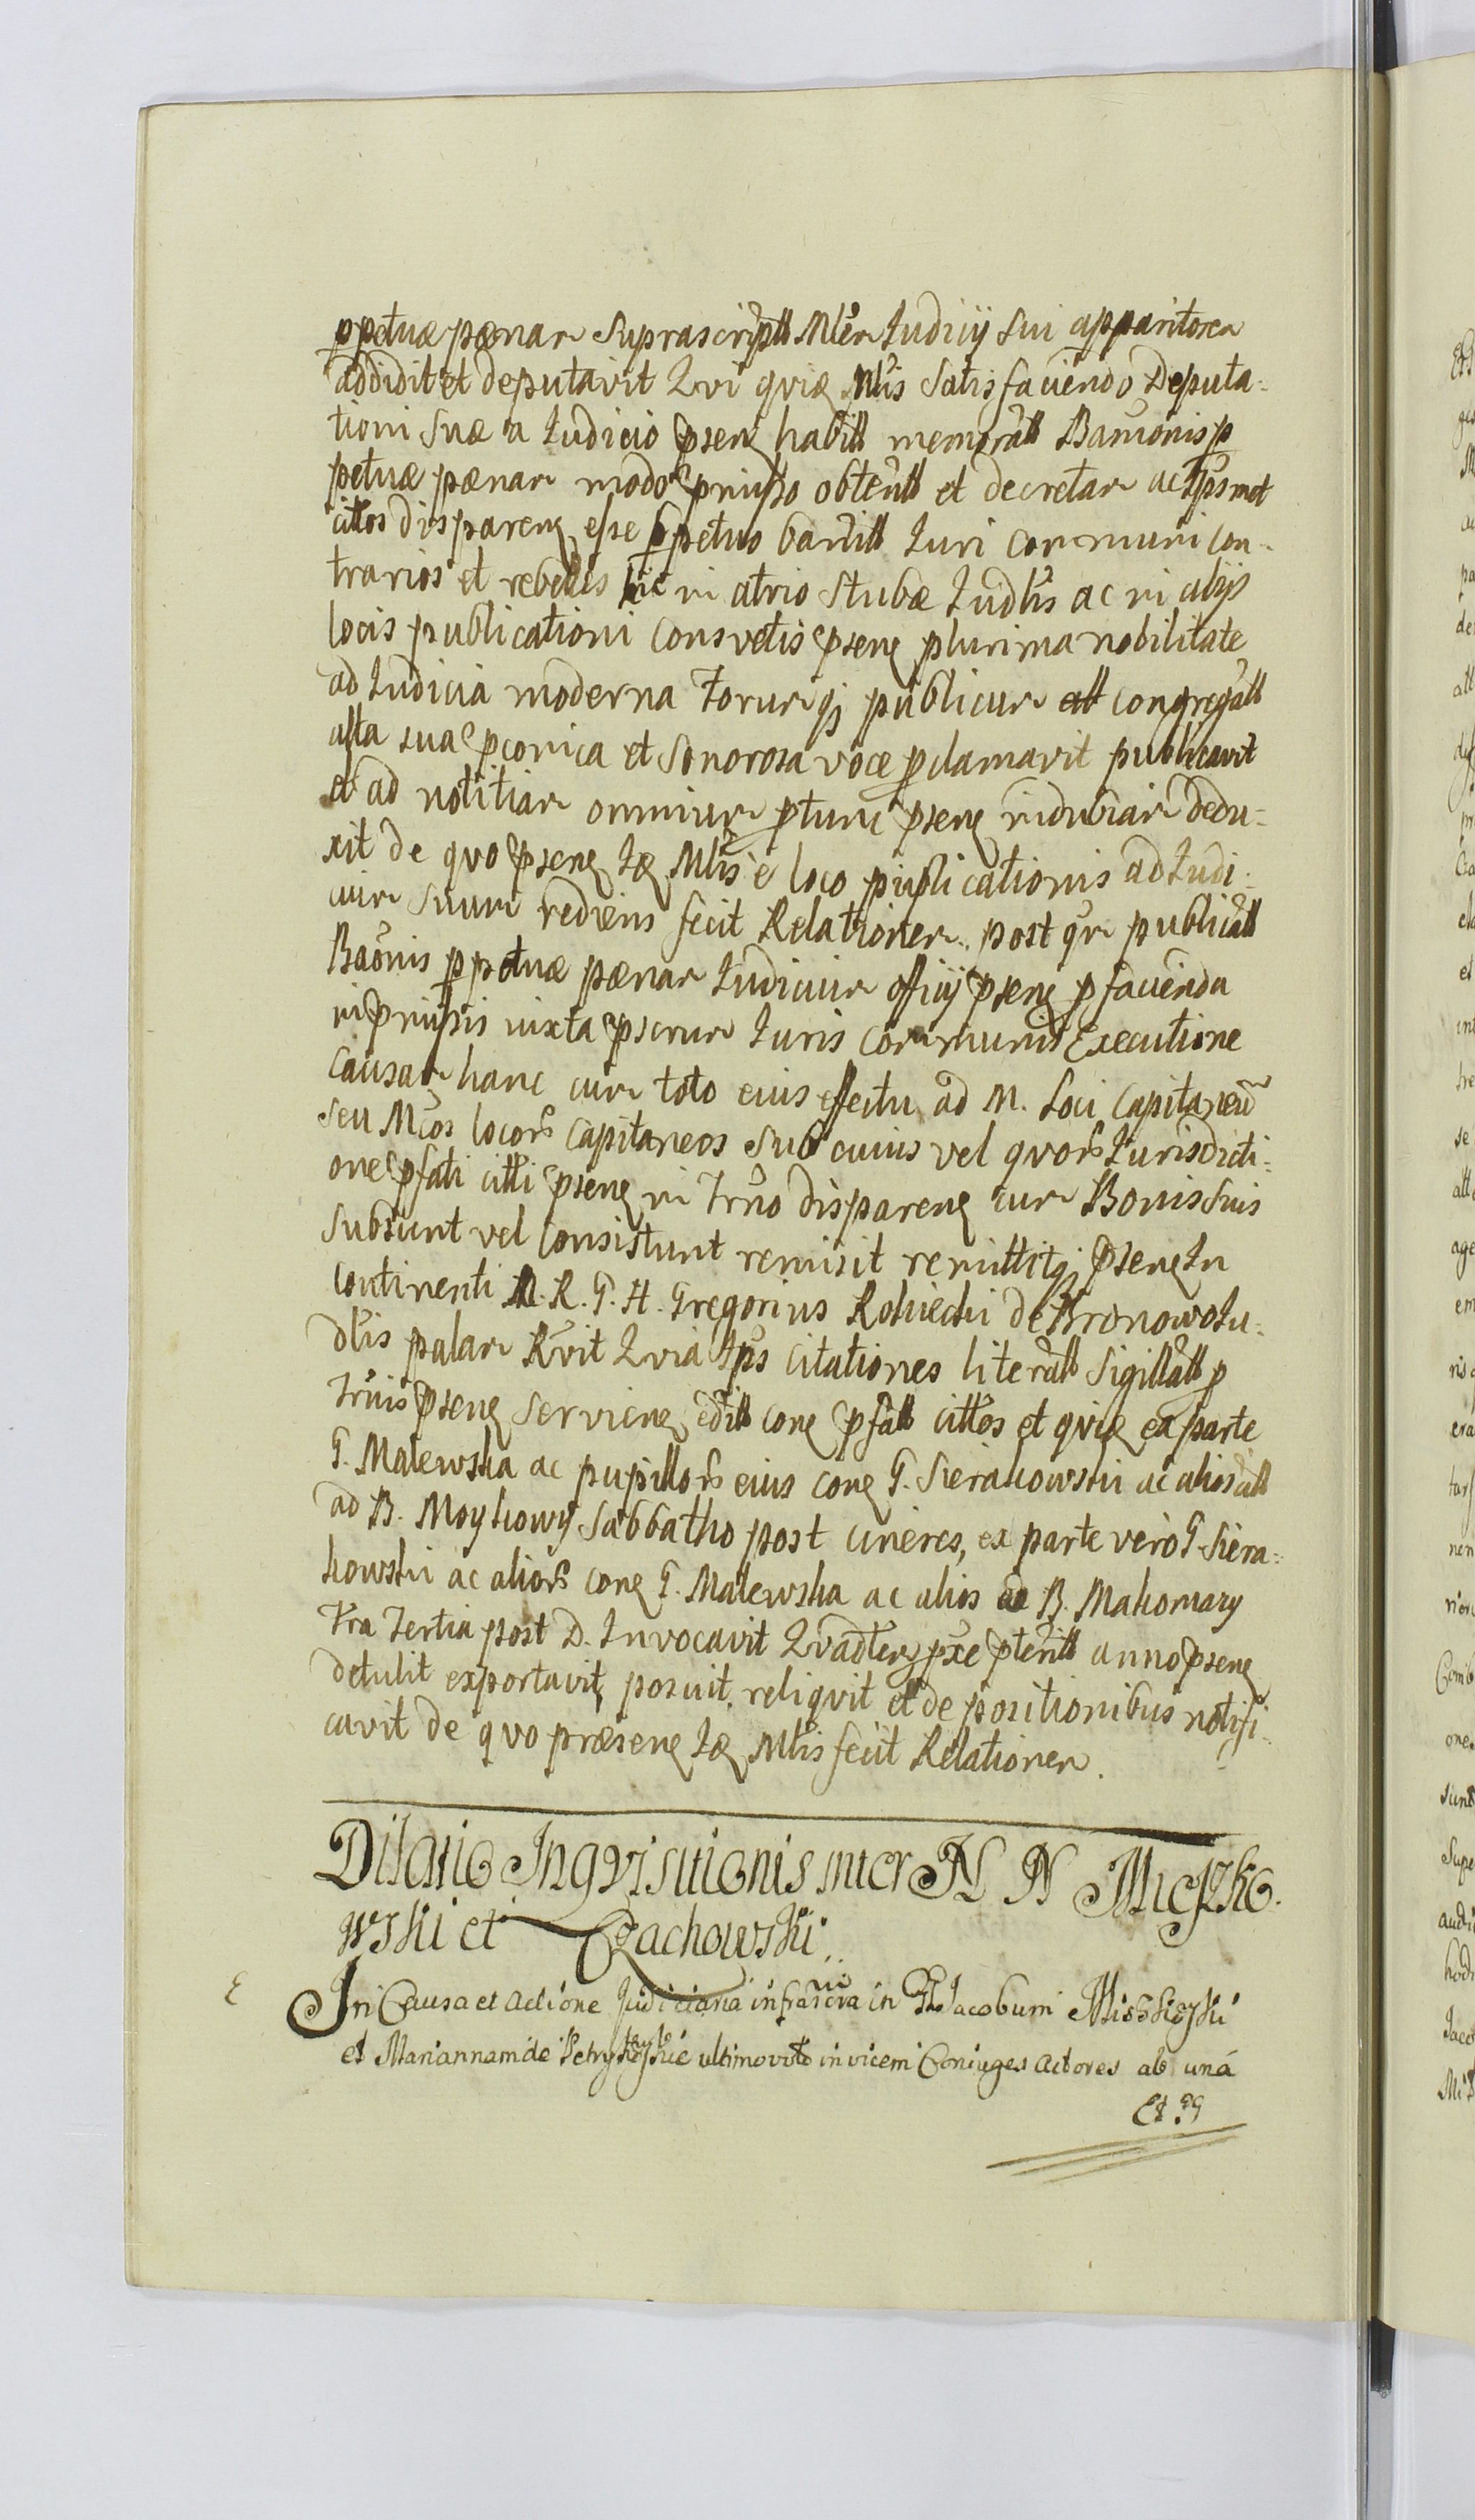 ppetuæ pœnam suprascriptt Mlẽr Judicij sui apparitorem
addidit et deputavit Qvi qviæ Mlis satisfaciendo Deputa-
tioni suæ a Judicio psen habitt memoratt Banitionis p
petuæ pœnam modo pmisso obtentt et decretam ac ipsmet
cittos disparen esse ppetuo banitt Juri communi con-
trarios et rebelles hic in atrio stubæ Judlis ac in alijs
locis publicationi consvetis psen plurima nobilitate
ad Judicia moderna forumq publicum att congregatt
alta sua pconica et sonorosa voce pclamavit publicavit
et ad notitiam omnium ptunc psen indubiam dedu-
xit de qvo psen Id Mlis e loco publicationis ad Judi-
cium suum rediens fecit Relationem. post qm publicatt
Baõnis ppetuæ pœnam Judicium officij psen p facienda
in pmissis iuxta pscrum Juris communis Executione
causam hanc cum toto eius effectu ad M. Loci Capitaneũ
seu Mcos locor Capitaneos sub cuius vel qvor Jurisdicti-
one pfati citti psen in Trno disparen cum Bonis suis
subsunt vel consistunt remisit remittitq psen In
continenti M. R. G. H. Gregorius Rokicki de Kronowo Ju-
dlis palam Rvit Qvia Ips citationes literatt sigillatt p
Trnis psen servien editt con pfatt cittos et qviæ ex parte
G. Malewska ac pupillor eius con G. Sierakowski ac alios att
ad B. Moykowy Sabbatho post cineres, ex parte vero G. Siera-
kowski ac alior con G. Malewska ac alios ad B. Makomazy
fra tertia post D. Invocavit Qvadter pxe pteritt anno psen
detulit exportavit, posuit, reliqvit et de positionibus notifi-
cavit de qvo præsen Id Mlis fecit Relationem.
Dilatio Inqvisitionis inter N N Mieszko-
wski et Czachowski.
In Causa et Actione Judiciaria infrascra in Jacobum
et Mariannam de ultimo voto invicem Coniuges Actores ab una
Et